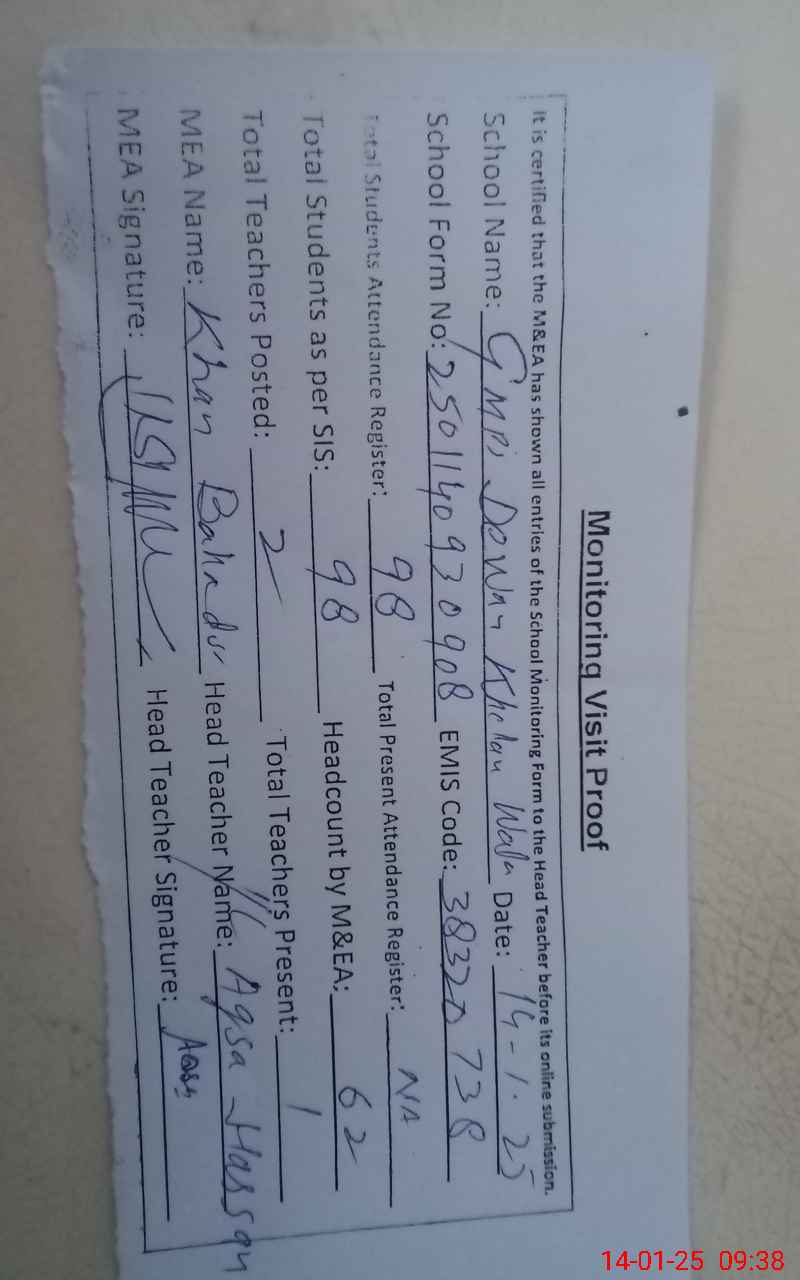 Monitoring Visit Proof
It is certified that the M&EA has shown all entries of the School Monitoring Form to the Head Teacher before its online submission.
School Name: GMPS Dewan Khelan Wala Date: 14-1-25
School Form No: 25011409330908 EMIS Code: 38320738
Total Students Attendance Register: 98 Total Present Attendance Register: NA
Total Students as per SIS: 98 Headcount by M&EA: 62
Total Teachers Posted: 2 Total Teachers Present: 1
MEA Name: Khan Bahadur Head Teacher Name: Aqsa Hassan
MEA Signature: Head Teacher Signature: Aqsa
14-01-25 09:38